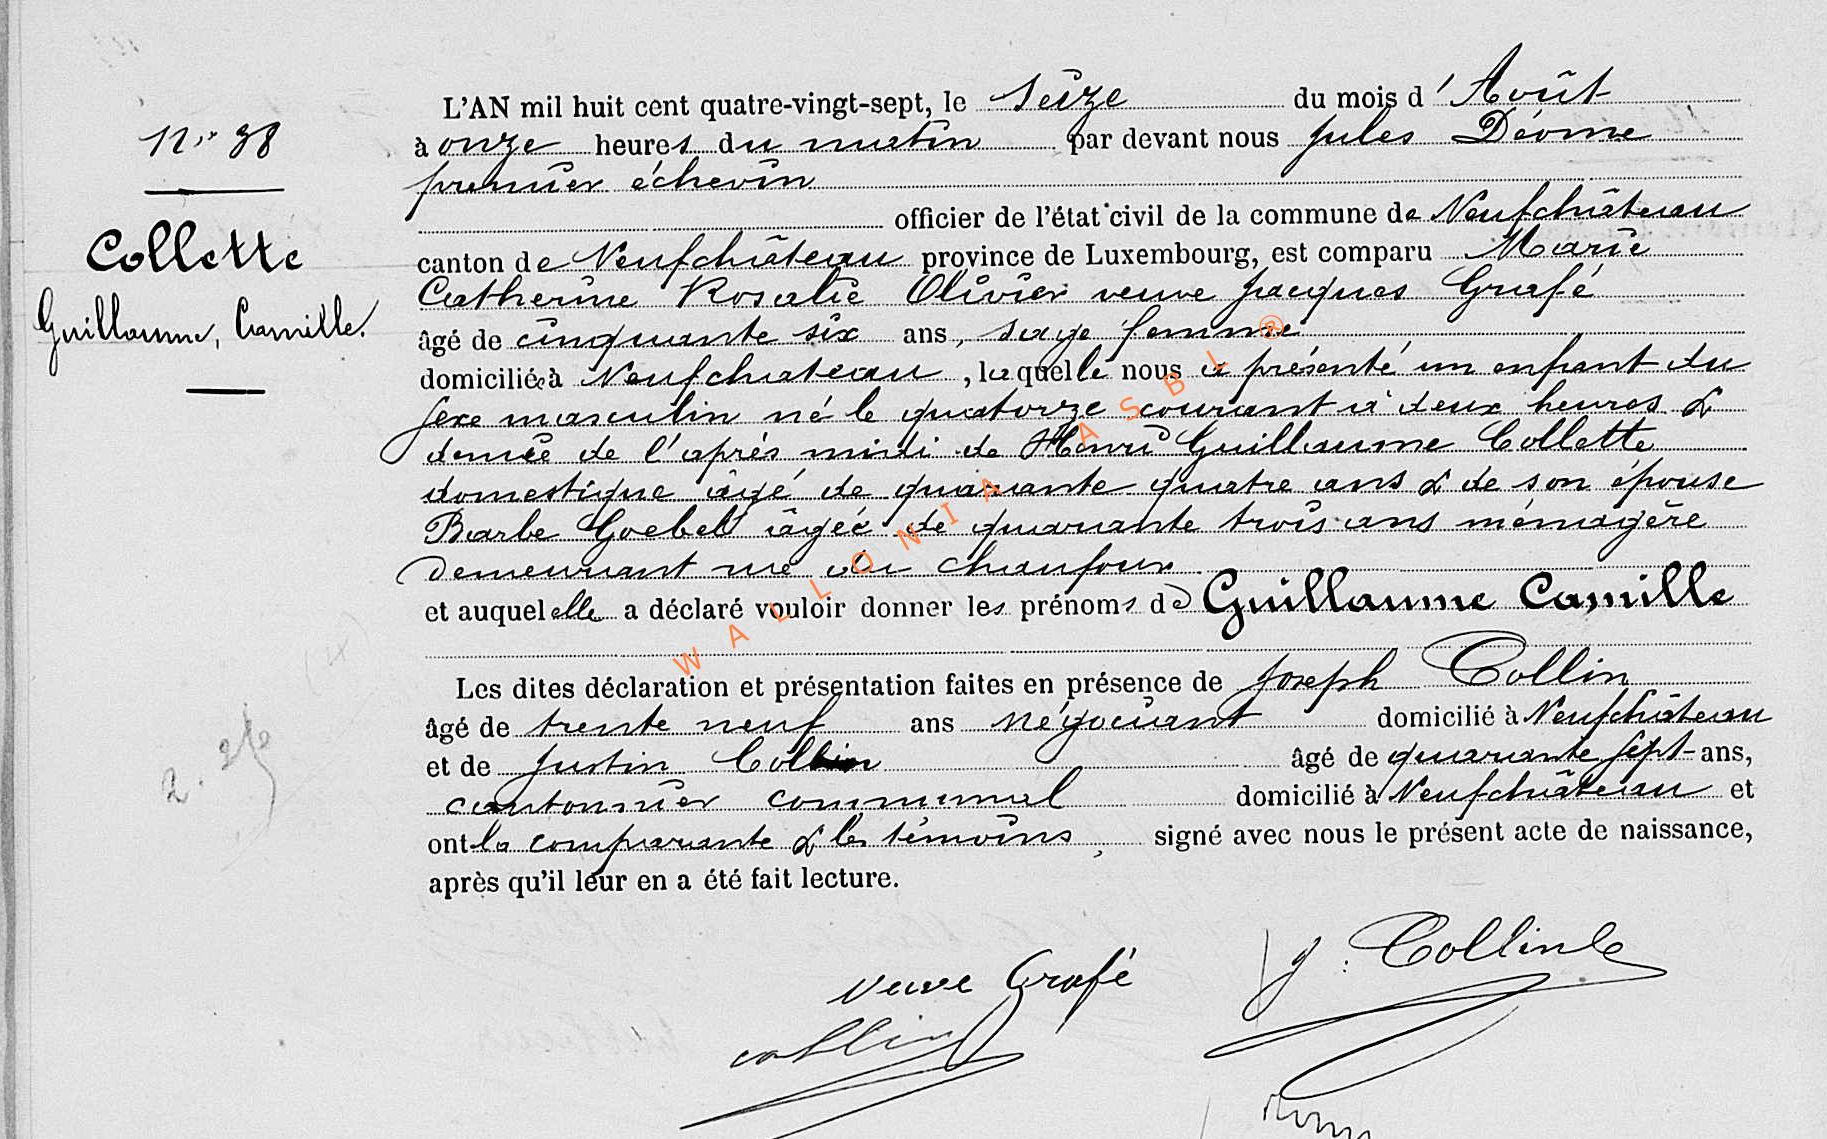 N° 38
Collette
Guillaume, Camille.
L'AN mil huit cent quatre-vingt-sept, le seize du mois d'Août
à onze heures du matin par devant nous Jules Déome
premier échevin
officier de l'état civil de la commune de Neufchâteau
canton de Neufchâteau province de Luxembourg, est comparu Marie
Catherine Rosalie Olivier veuve Jacques Grafé
âgé de cinquante six ans, sage femme
domiciliée à Neufchateau, laquelle nous a présenté un enfant du
sexe masculin né le quatorze courant à deux heures &
demie de l'après midi de Henri Guillaume Collette
domestique âgé de quarante quatre ans & de son épouse
Barbe Goebel âgée de quarante trois ans ménagère
demeurant rue du chaufour
et auquel elle a déclaré vouloir donner les prénoms de Guillaume Camille
Les dites déclaration et présentation faites en présence de Joseph Collin
âgé de trente neuf ans négociant domicilié à Neufchâteau
et de Justin Collin âgé de quarante sept ans,
cantonnier communal domicilié à Neufchâteau et
ont la comparante & les témoins, signé avec nous le présent acte de naissance,
après qu'il leur en a été fait lecture.
Veuve Grafé
J. Collin
collin
WALLONIA ASBL ®